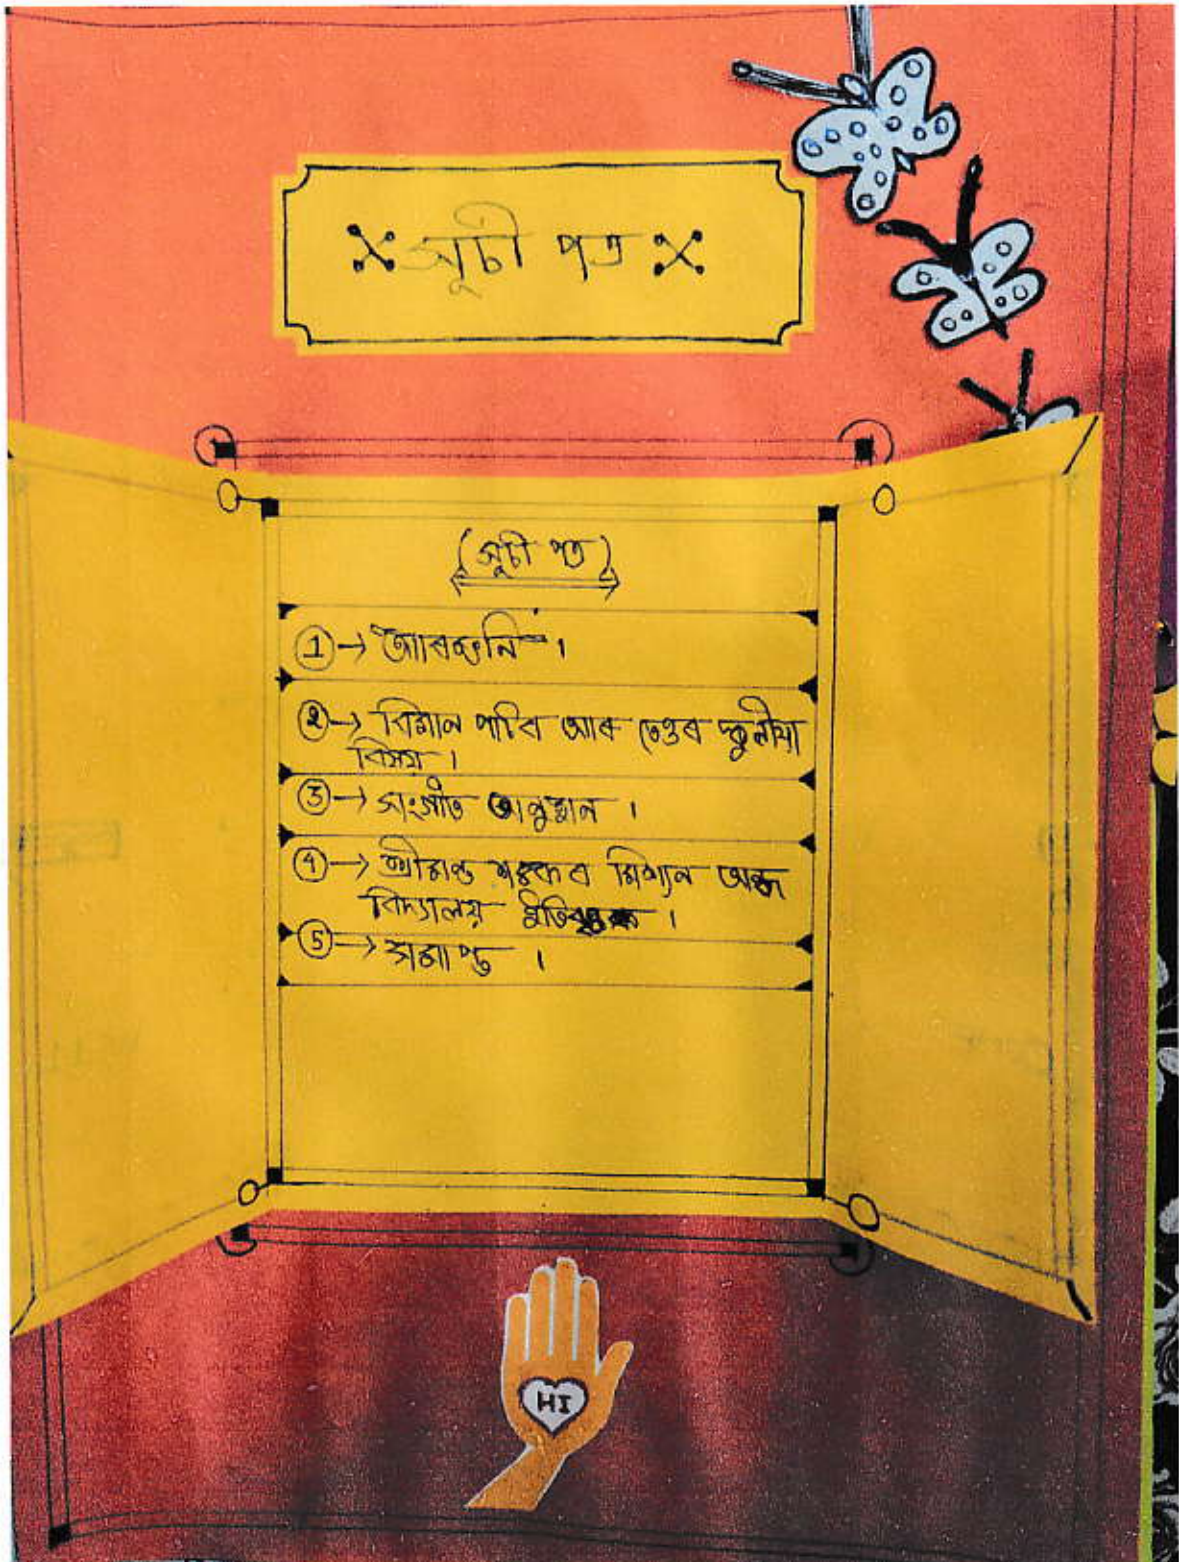 সূচী পত্ৰ
(সূচী পত্ৰ)
① → আৰম্ভনি ।
② → বিমান পাটৰ আৰু তেওঁৰ স্কুলীয়া
বিষয় ।
③ → সংগীত অনুষ্ঠান ।
④ → শ্ৰীমন্ত শঙ্কৰ মিশ্যন অন্ধ
বিদ্যালয় ।
⑤ → সমাপ্ত ।
HI